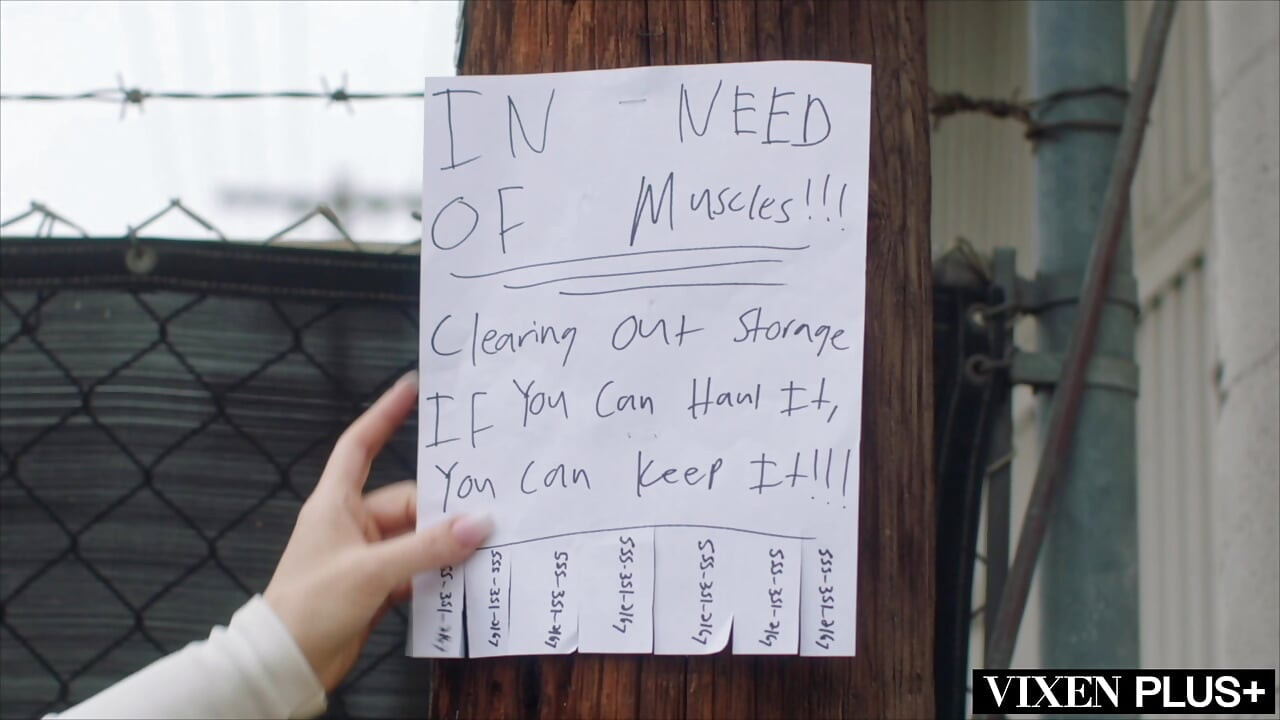 IN - NEED
OF Muscles!!!
Clearing Out Storage
IF You Can Haul It,
You Can Keep It!!!
555-351-2167
555-351-2167
555-351-2167
555-351-2167
555-351-2167
555-351-2167
VIXEN PLUS+